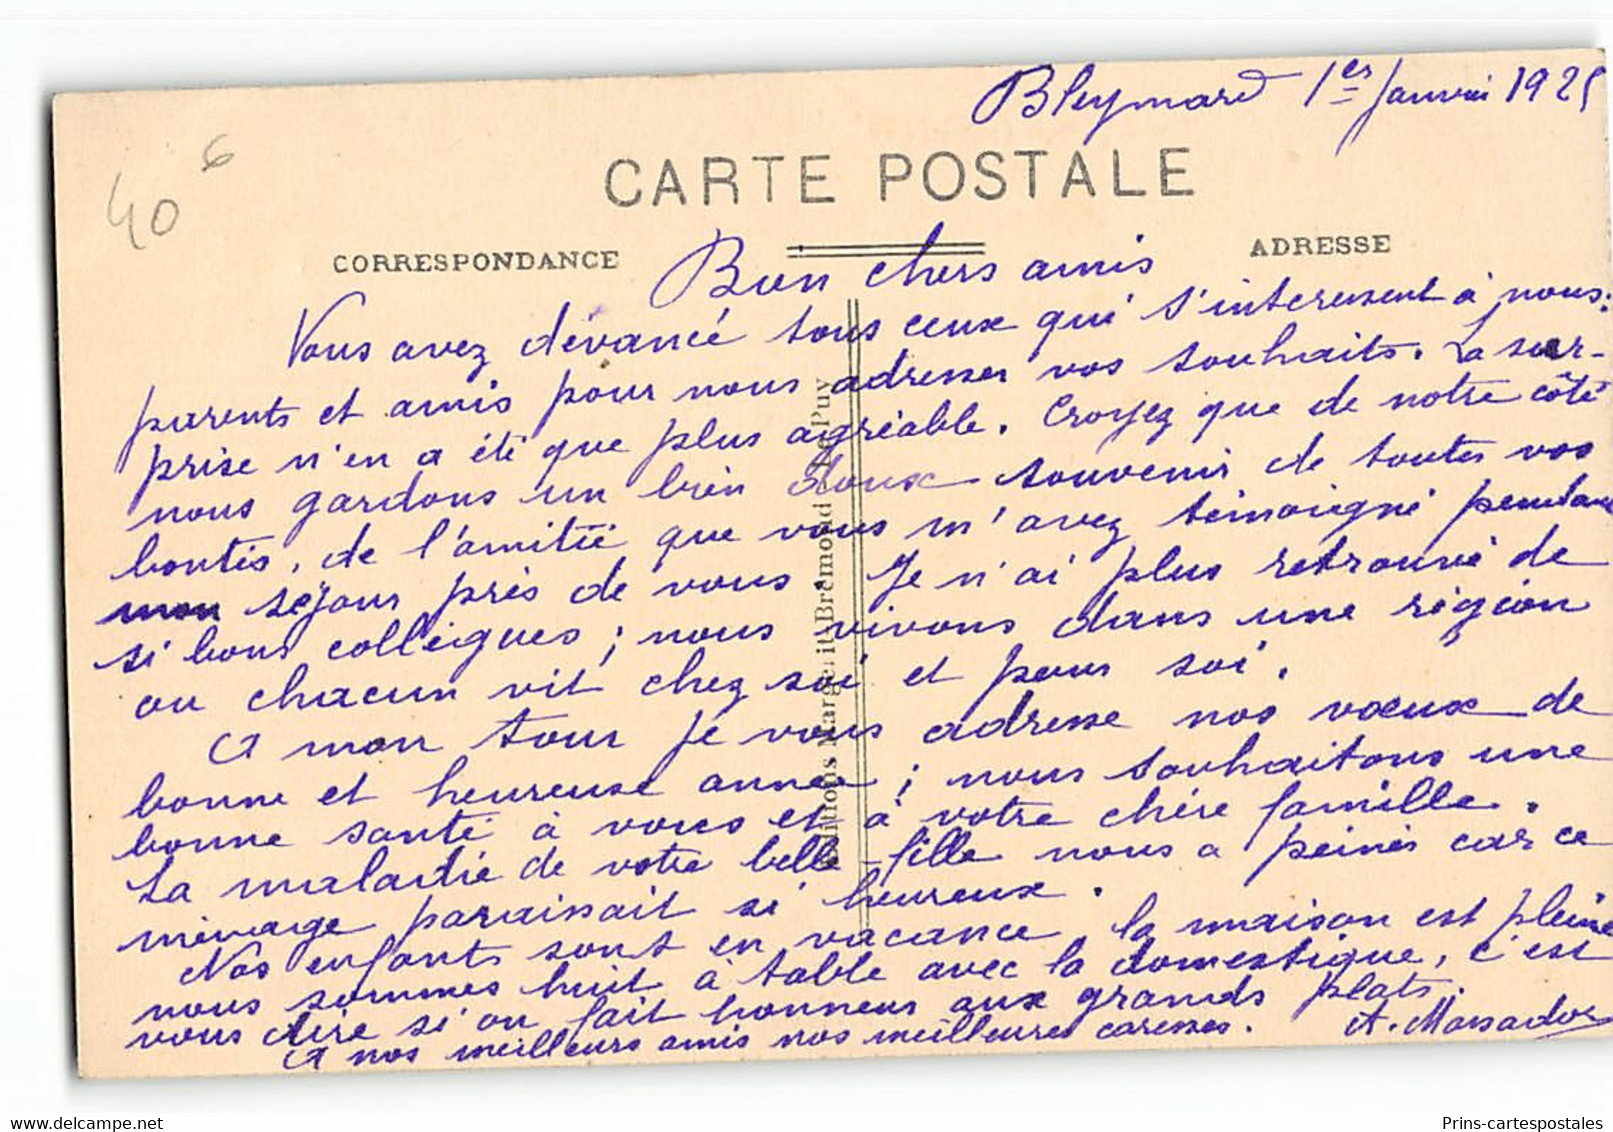 Bleymard 1er Janvier 1925
40 6
CARTE POSTALE
CORRESPONDANCE
ADRESSE
Bien chers amis
Vous avez dévancé tous ceux qui s'interessent à nous:
parents et amis pour nous adresser vos souhaits. La sur-
prise n'en a été que plus agréable. Croyez que de notre côté
nous gardons un bien doux souvenir de toutes vos
bontés, de l'amitié que vous m'avez témoigné pendant
mon séjour près de vous. Je n'ai plus retrouvé de
si bons collègues; nous vivons dans une région
ou chacun vit chez soi et pour soi.
A mon tour je vous adresse nos vœux de
bonne et heureuse année; nous souhaitons une
bonne santé à vous et à votre chère famille.
La maladie de votre belle-fille nous a peinés car ce
ménage paraissait si heureux.
Nos enfants sont en vacance, la maison est pleine
nous sommes huit à table avec la domestique, c'est
vous dire si on fait honneur aux grands plats.
A nos meilleurs amis nos meilleures caresses. A. Massador
Editions Margerit-Brémond Le Puy
www.delcampe.net
Prins-cartespostales